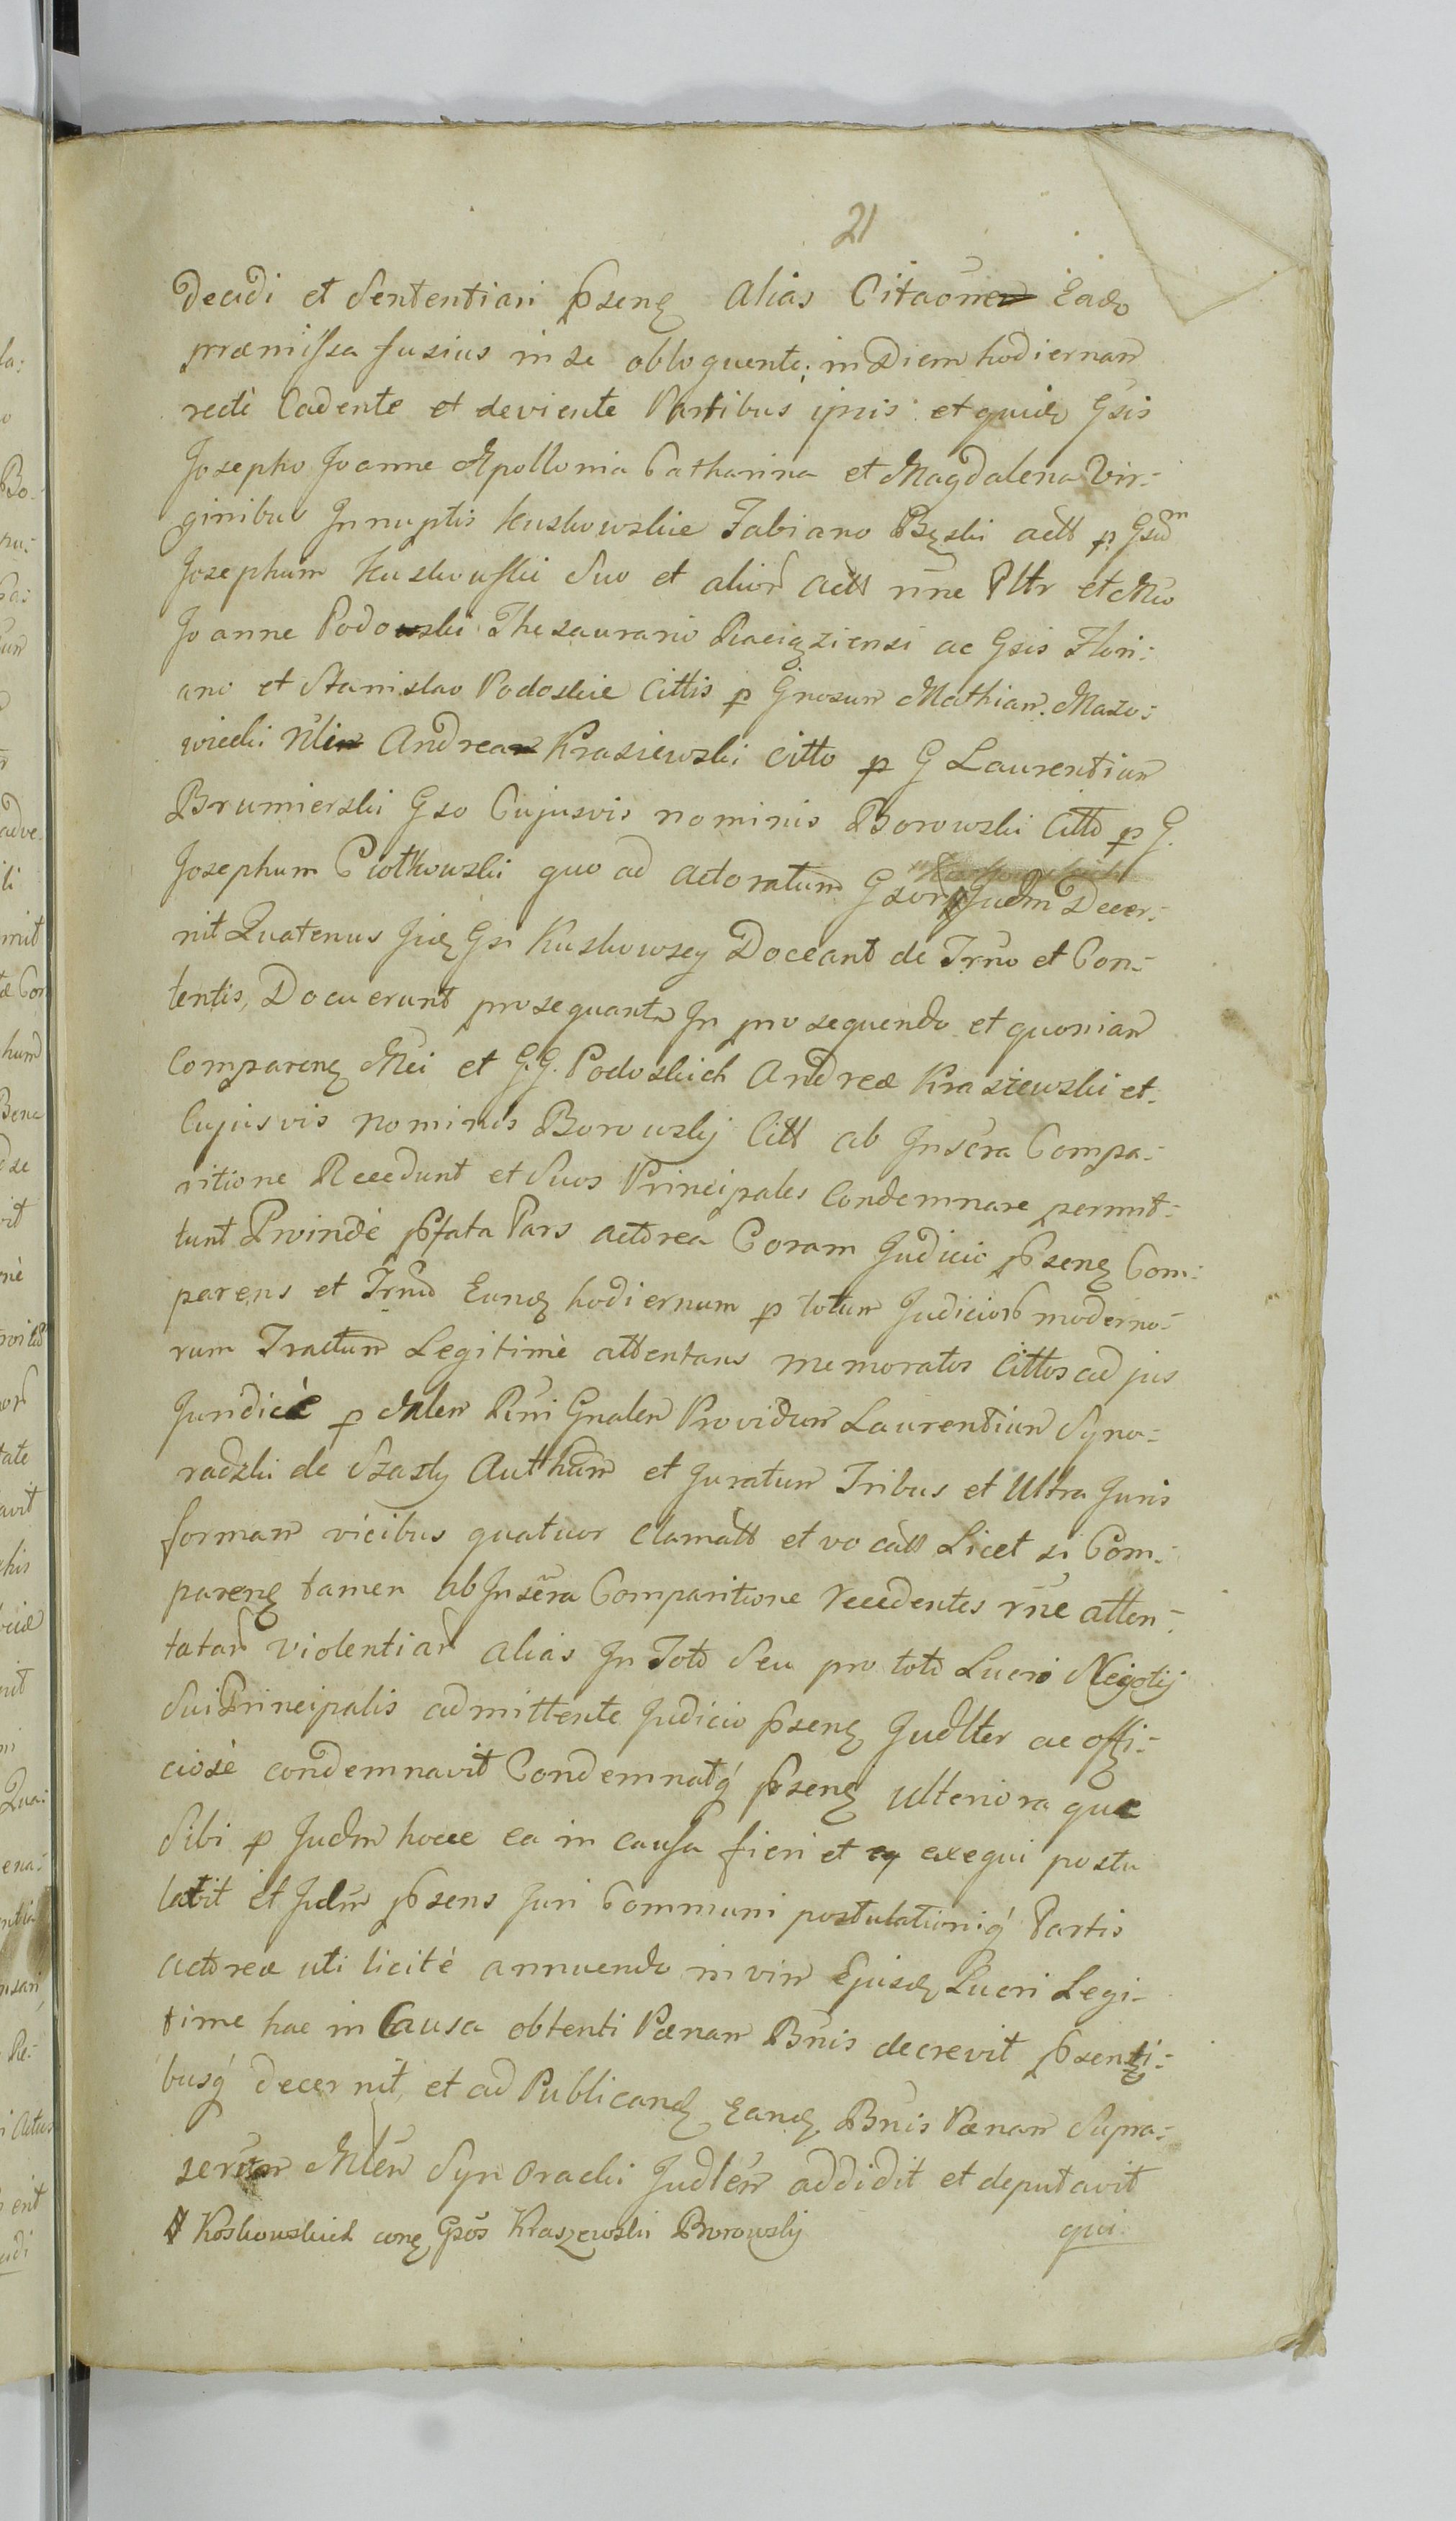 21
decidi et Sententiari p̄senẜ alias Citaōne Eadō
præmissa fusius in se obloquente; in Diem hodiernam̄
rectè Cadente et deviente Partibus ipsis et quidō Gsis
Josepho Joanne Apollonia Catharina et Magdalena Vir-
ginibus Innuptis Kuskowskie Fabiano Bęski actt p Gsum̄
Josephum Kuskowski Suo et alior̄ actt nn̄e Pltr et Mco
Joanne Podowski Thesaurario Raciąziensi ac Gsis Flori:
ano et Stanislao Podoskie Cittis p Gnosum̄ Mathiam̄ Mazo:
wiecki Andrea Krasiewski citto p G Laurentium̄
Brumierski Gso Cujusvis nominis Borowski Citto p G.
Josephum Ciotkowski quo ad actoratum Gsor̄ Judm Decer:
nit Quatenus Jidẜ Gsi Kuskowscy Doceant de Trn̄o et Con:
tentis, Docuerunt prosequantr In prosequendo et quoniam̄
Comparenẜ Mci et G.G. Podoskich Andreæ Krasiewski et
Cujusvis nominis Borowskij Citt ab Inscra Compa:
ritione Recedunt et Suos Principales Condemnare permit:
tunt Proindè p̄fata Pars actorea Coram Judicio p̄senẜ Com:
parens et Trn̄m Eundẜ hodiernum p totum Judicior̄ moderno:
rum Tractum̄ Legitimè attentans memoratos Cittos ad jus
Juridicè p Mlem̄ Rn̄i Gnalem̄ Providum̄ Laurentium̄ Syno:
radzki de Szasty Autham̄ et Juratum̄ Tribus et Ultra Juris
formam̄ vicibus quatuor clamatt et vocatt Licet si Com:
parenẜ tamen ab Inscra Comparitione recedentes rn̄e atten:
tatam̄ violentiam̄ alias In Toto Seu pro toto Lucro Negotij
Sui Principalis admittente Judicio p̄senẜ Judlter ac offi:
ciosè condemnavit Condemnatq́ p̄senẜ Ulteriora quæ
Sibi p Judm hocce ea in causa fieri et exequi postu
lavit et Judm p̄sens Juri Communi postulationiq́ Partis
actoreæ uti licitè annuendo in vim̄ Ejusdẜ Lucri Legi-
time hac in Causa obtenti Pænam̄ Bn̄is decrevit p̄senti:
busq́ decernit, et ad Publicandẜ Eandẜ Bn̄is Pænam̄ Supra:
scrām̄ Mlem̄ Synoracki Judlem̄ addidit et deputavit
Koskowskich conẜ Gsos Kraszewski Borowskij
qui